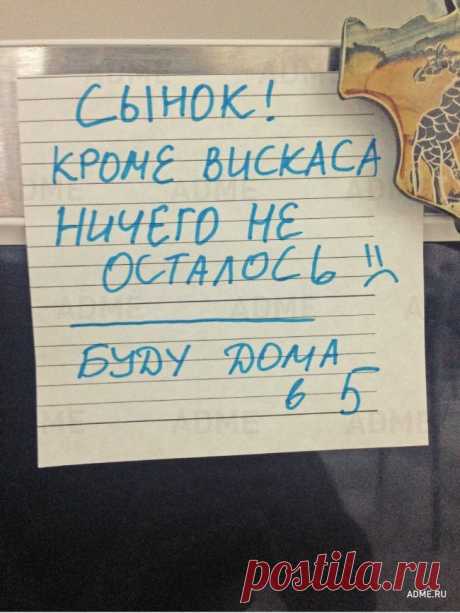 СЫНОК!
КРОМЕ ВИСКАСА
НИЧЕГО НЕ
ОСТАЛОСЬ :(
БУДУ ДОМА
в 5
postila.ru
ADME.RU